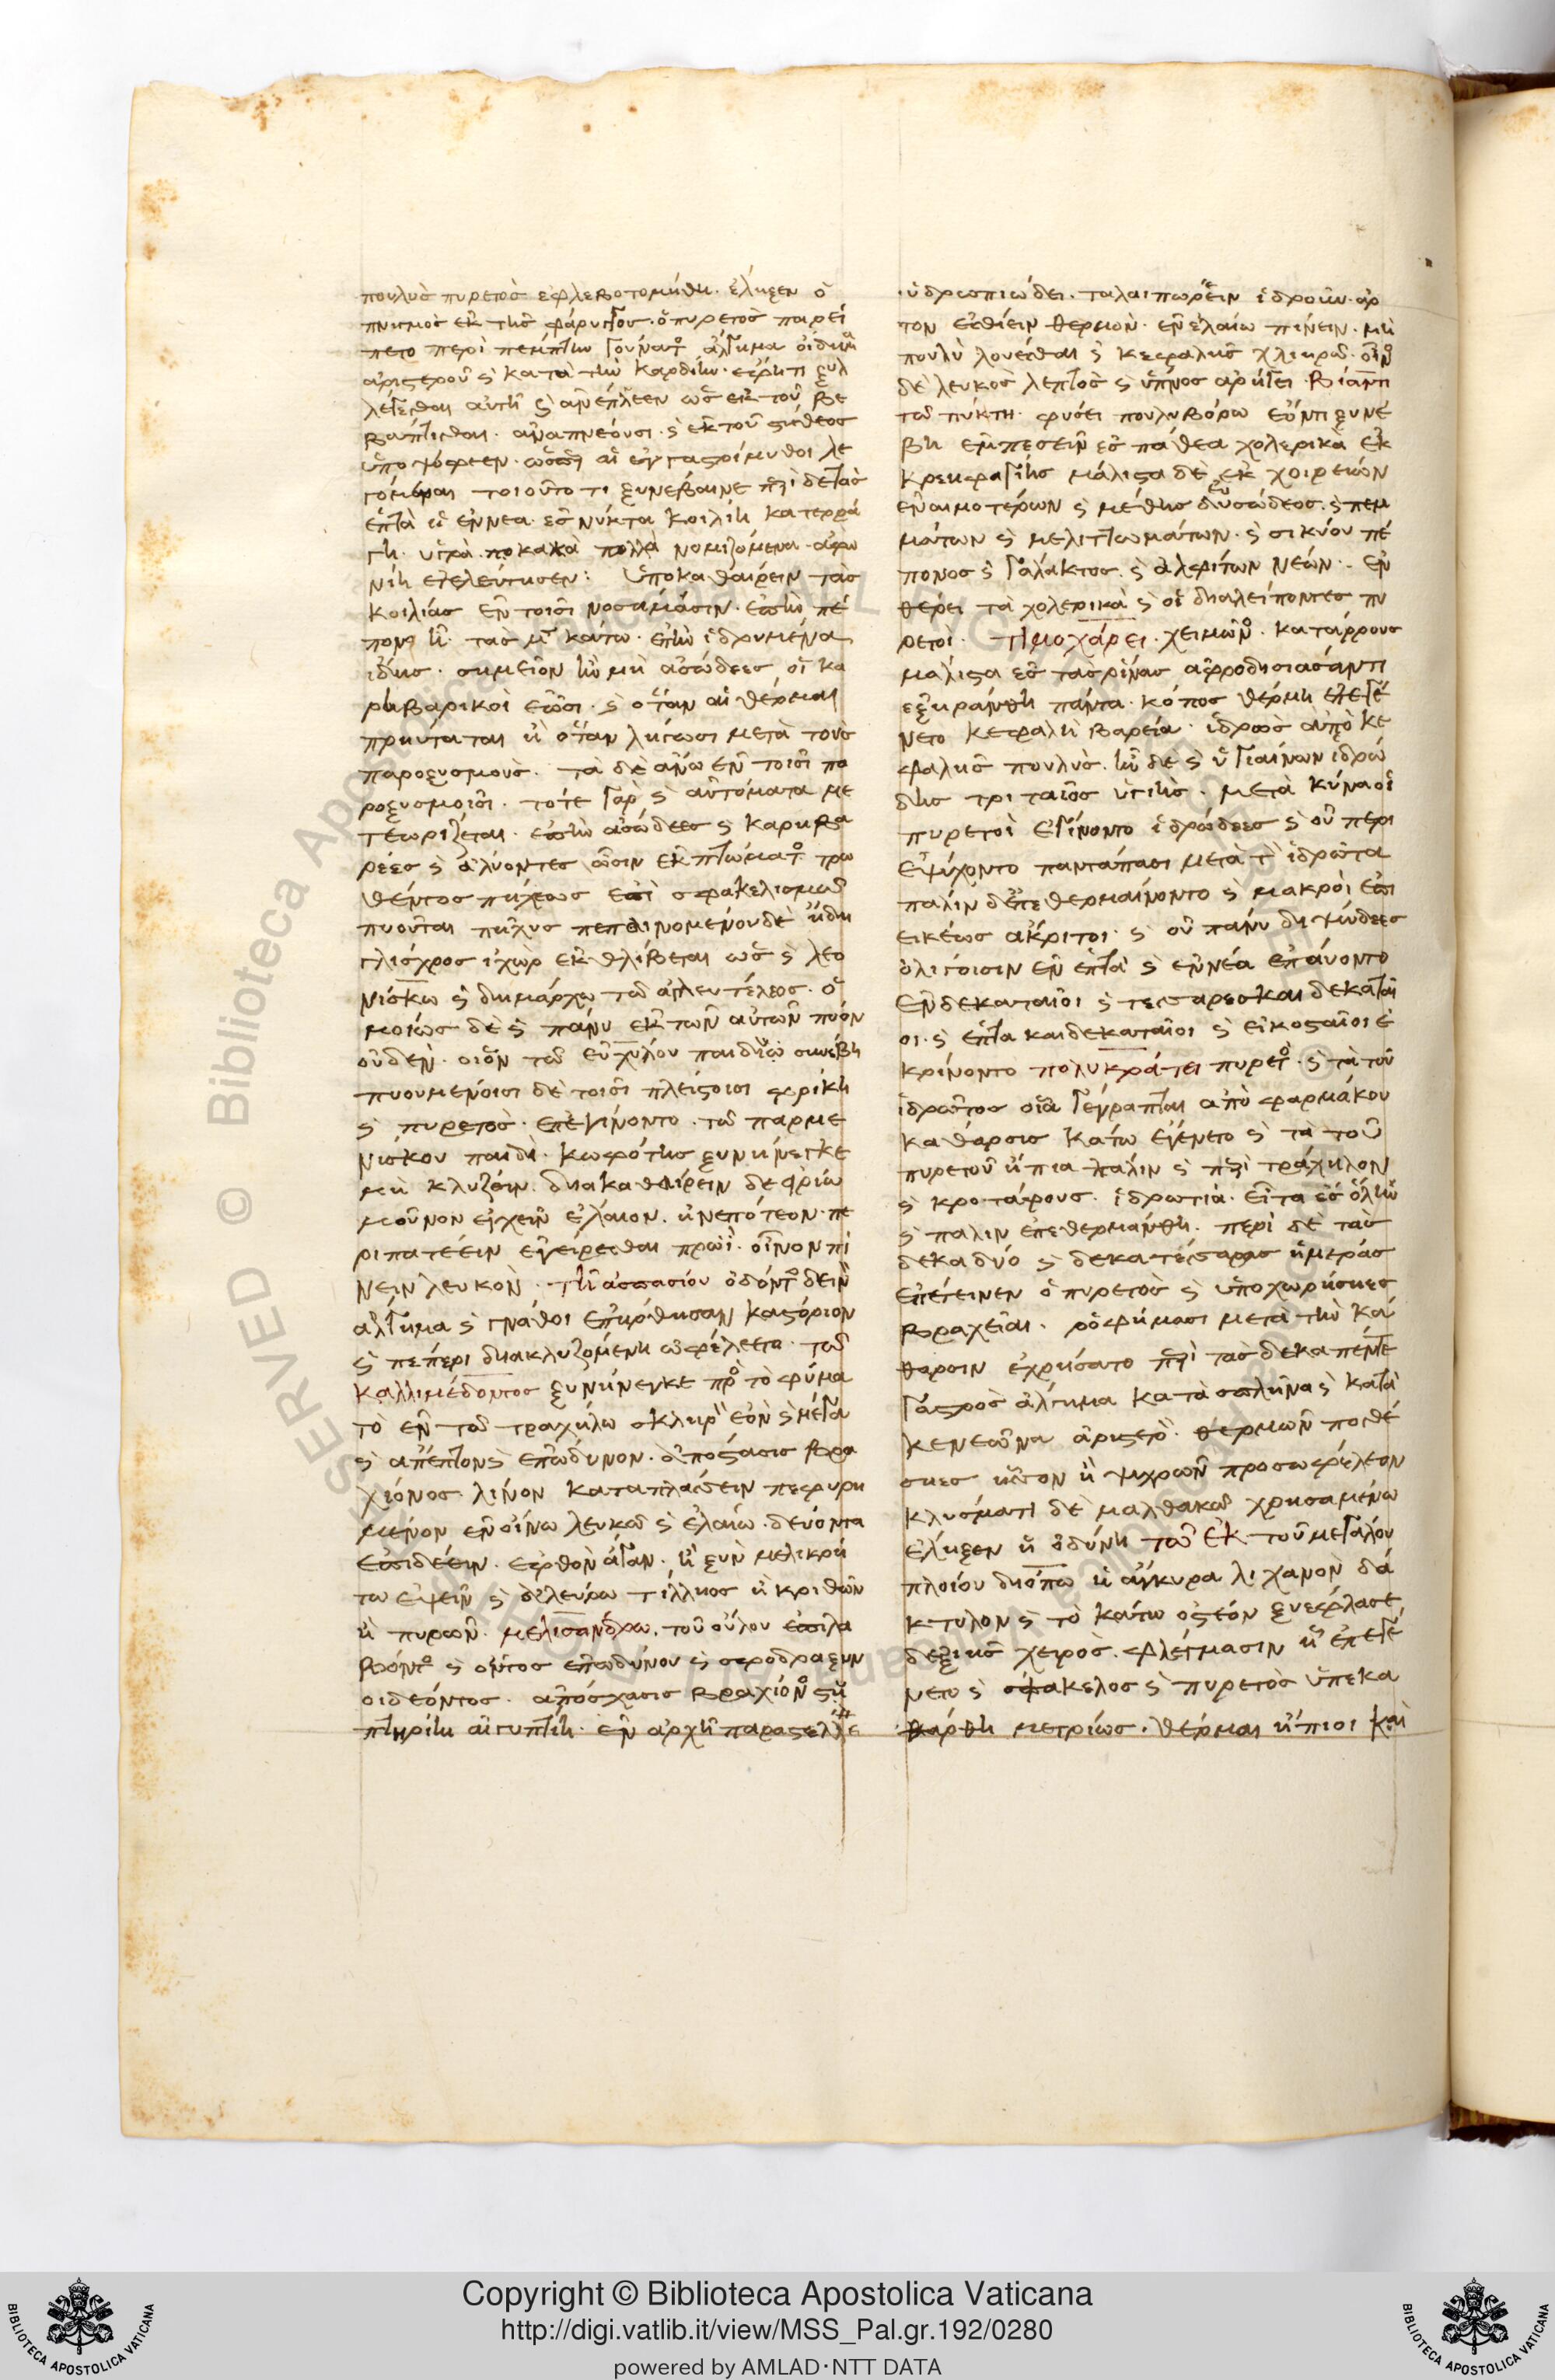 πουλὺς πυρετὸς ἐφλεβοτομήθη. ἔληξεν ὁ
πνιγμὸς ἐκ τῆς φάρυγγος. ὁ πυρετὸς παρεί
πετο περὶ πέμπτην γούνατος ἄλγημα οἴδημα
ἀριστεροῦ ϛ κατὰ τὴν καρδίην. ἔφη τι ξυλ
λέγεσθαι αὐτῇ ϛ ἀνέπλεεν ὡς ἐκ τοῦ βε
βάπτισθαι. ἀναπνέουσι. ϛ ἐκ τοῦ στήθεος
ὑποψόφεεν. ὥσπερ αἱ ἐγγαστρίμυθοι λε
γόμεναι τοιοῦτό τι ξυνέβαινε περὶ δὲ τὰς
ἑπτὰ ἢ ἐννέα. ἐς νύκτα κοιλίη κατερρά
γη. ὑγρὰ. πο κακὰ πολλὰ νομιζόμενα. ἀφω
νίη ἐτελεύτησεν: ὑποκαθαίρειν τὰς
κοιλίας ἐν τοῖσι νοσήμασιν. ἐπὴν πέ
πονα ᾖ. τὰς μὲν κάτω. ἐπὴν ἱδρυμένα
ἴδῃς. σημεῖον ἢν μὴ ἀσώδεες οἱ κα
ρηβαρικοὶ ἔωσι. ϛ ὅταν αἱ θέρμαι
πρηύταται ἢ ὅταν λήγωσι μετὰ τοὺς
παροξυσμοὺς. τὰ δὲ ἄνω ἐν τοῖσι πα
ροξυσμοῖσι. τότε γὰρ ϛ αὐτόματα με
τεωρίζεται. ἐπὴν ἀσώδεες ϛ καρηβα
ρέες ϛ ἀλύοντες ὦσιν ἐκ πτώματος τρω
θέντος πήχεως ἐπὶ σφακελισμῷ
πυοῦται πῆχυς πεπαινομένου δὲ ἤδη
γλίσχρος ἰχὼρ ἐκθλίβεται ὡς ϛ λεο
νίσκῳ ϛ δημάρχῳ τῷ ἀλευτέλεος. ὁ
μοίως δὲ ϛ πάνυ ἐκ τῶν αὐτῶν πύον
οὐδὲν. οἷον τῷ εὐχύλου παιδίῳ συνέβη
πυουμένοισι δὲ τοῖσι πλείστοισι φρίκη
ϛ πυρετὸς. ἐπεγίνοντο. τῷ παρμε
νίσκου παιδὶ. κωφότης ξυνήνεγκε
μὴ κλύζειν. διακαθαίρειν δὲ ἐρίῳ
μοῦνον ἐγχεῖν ἔλαιον. ἢ νέτωπον. πε
ριπατέειν ἐγείρεσθαι πρωῒ. οἶνον πί
νειν λευκὸν. τῇ ἀσπασίου ὀδόντος δεινὸν
ἄλγημα ϛ γνάθοι ἐπήρθησαν καστόριον
ϛ πέπερι διακλυζομένη ὠφέλεετο. τῷ
καλλιμέδοντος ξυνήνεγκε πρὸς τὸ φῦμα
τὸ ἐν τῷ τραχήλῳ σκληρὸν ἐὸν ϛ μέγα
ϛ ἄπεπτον ϛ ἐπώδυνον. ἀπόστασις βρα
χίονος. λίνον καταπλάσσειν πεφυρη
μένον ἐν οἴνῳ λευκῷ ϛ ἐλαίῳ. δεύοντα
ἐπιδέειν. ἑφθὸν ἄγαν. ἢ ξὺν μελικρή
τῳ ἕψειν ϛ ἀλεύρῳ τήλιος ἢ κριθῶν
ἢ πυρῶν. μελισάνδρῳ. τοῦ οὔλου ἐπιλα
βόντος ϛ ὄντος ἐπωδύνου ϛ σφόδρα ξυν
οιδέοντος. ἀπόσχασις βραχίονος στυ
πτηρίη αἰγυπτίη. ἐν ἀρχῇ παραστέλλε
ὑδρωπιώδει. ταλαιπωρέειν ἱδροῦν. ἄρ
τον ἐσθίειν θερμὸν. ἐν ἐλαίῳ πίνειν. μὴ
πουλὺ λούεσθαι ϛ κεφαλῆς χλιηρῷ. οἶνος
δὲ λευκὸς λεπτὸς ϛ ὕπνος ἀρήγει. βίαντι
τῷ πύκτῃ. φύσει πουλυβόρῳ ἐόντι ξυνέ
βη ἐμπεσεῖν ἐς πάθεα χολερικὰ ἐκ
κρεηφαγίης μάλιστα δὲ ἐκ χοιρείων
ἐναιμοτέρων ϛ μέθης εὐώδεος. ϛ πεμ
μάτων ϛ μελιττωμάτων. ϛ σικύου πέ
πονος ϛ γάλακτος. ϛ ἀλφίτων νέων. ἐν
θέρει τὰ χολερικὰ ϛ οἱ διαλείποντες πυ
ρετοὶ. τιμοχάρει. χειμῶνος. κατάρρους
μάλιστα ἐς τὰς ῥῖνας ἀφροδισιάσαντι
ἐξηράνθη πάντα. κόπος θέρμη ἐπεγέ
νετο κεφαλὴ βαρεία. ἱδρὼς ἀπὸ κε
φαλῆς πουλὺς. ἦν δὲ ϛ ὑγιαίνων ἱδρώ
δης τριταῖος ὑγιὴς. μετὰ κύνα οἱ
πυρετοὶ ἐγίνοντο ἱδρώδεες ϛ οὐ περι
εψύχοντο παντάπασι μετὰ τὸν ἱδρῶτα
πάλιν δὲ ἐπεθερμαίνοντο ϛ μακροὶ ἐπι
εικέως ἄκριτοι. ϛ οὐ πάνυ διψώδεες
ὀλίγοισιν ἐν ἑπτὰ ϛ ἐννέα ἐπαύοντο
ἑνδεκαταῖοι ϛ τεσσαρεσκαιδεκαταῖ
οι. ϛ ἑπτακαιδεκαταῖοι ϛ εἰκοσταῖοι ἐ
κρίνοντο πολυκράτει πυρετὸς. ϛ τὰ τοῦ
ἱδρῶτος οἷα γέγραπται ἀπὸ φαρμάκου
κάθαρσις κάτω ἐγένετο ϛ τὰ τοῦ
πυρετοῦ ἤπια πάλιν ϛ περὶ τράχηλον
ϛ κροτάφους. ἱδρώτια. εἶτα ἐς ὅλον
ϛ πάλιν ἐπεθερμάνθη. περὶ δὲ τὰς
δεκαδύο ϛ δεκατέσσαρας ἡμέρας
ἐπέτεινεν ὁ πυρετὸς ϛ ὑποχωρήσιες
βραχεῖαι. ῥοφήμασι μετὰ τὴν κά
θαρσιν ἐχρήσατο περὶ τὰς δεκαπέντε
γαστρὸς ἄλγημα κατὰ σπλῆνα ϛ κατὰ
κενεῶνα ἀριστερὸν. θερμῶν προσθέ
σιες ἧσσον ἢ ψυχρῶν προσωφέλεον
κλύσματι δὲ μαλθακῷ χρησαμένῳ
ἔληξεν ἡ ὀδύνη τῷ ἐκ τοῦ μεγάλου
πλοίου διόπῳ ἡ ἄγκυρα λιχανὸν δά
κτυλον ϛ τὸ κάτω ὀστέον ξυνέφλασε
δεξιῆς χειρὸς. φλεγμασίη ἐπεγέ
νετο ϛ σφάκελος ϛ πυρετὸς ὑπεκα
θάρθη μετρίως. θέρμαι ἤπιοι καὶ
Copyright © Biblioteca Apostolica Vaticana
http://digi.vatlib.it/view/MSS_Pal.gr.192/0280
powered by AMLAD·NTT DATA